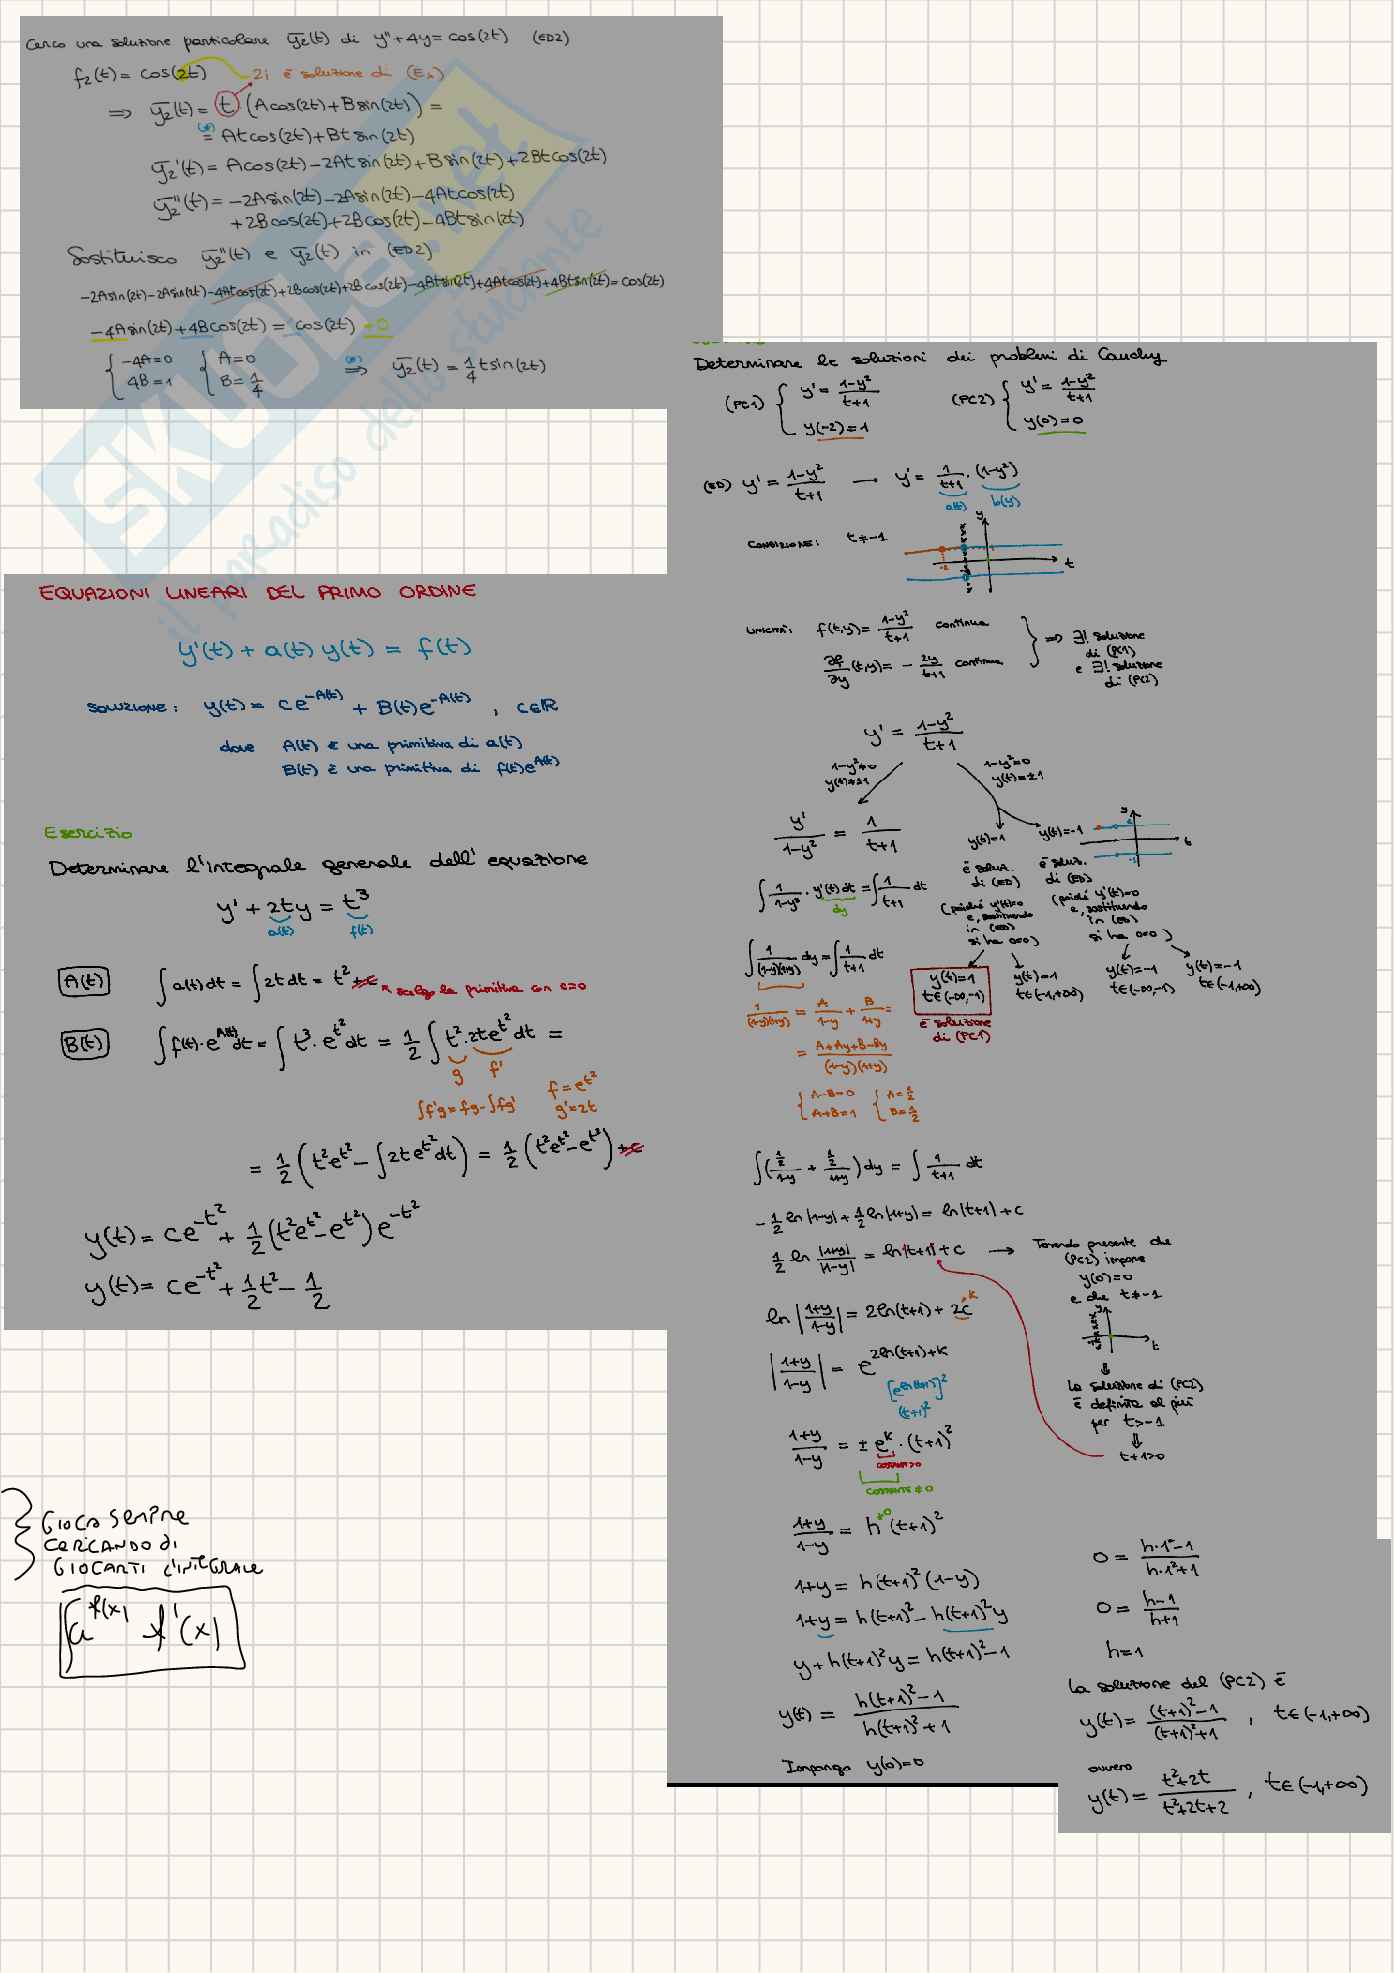 Cerco una soluzione particolare ȳ₂(t) di y''+4y = cos(2t) (ED2)
f₂(t) = cos(2t) 2i è soluzione di (EA)
⇒ ȳ₂(t) = t (A cos(2t) + B sin(2t)) =
(*) = At cos(2t) + Bt sin(2t)
ȳ₂'(t) = A cos(2t) - 2At sin(2t) + B sin(2t) + 2Bt cos(2t)
ȳ₂''(t) = -2A sin(2t) - 2A sin(2t) - 4At cos(2t)
+ 2B cos(2t) + 2B cos(2t) - 4Bt sin(2t)
Sostituisco ȳ₂''(t) e ȳ₂(t) in (ED2)
-2A sin(2t) - 2A sin(2t) - 4At cos(2t) + 2B cos(2t) + 2B cos(2t) - 4Bt sin(2t) + 4At cos(2t) + 4Bt sin(2t) = cos(2t)
-4A sin(2t) + 4B cos(2t) = cos(2t) + 0
{ -4A = 0 { A = 0 (*) ⇒ ȳ₂(t) = 1/4 t sin(2t)
4B = 1 B = 1/4
SKUOLA.net
il paradiso dello studente
EQUAZIONI LINEARI DEL PRIMO ORDINE
y'(t) + a(t) y(t) = f(t)
SOLUZIONE: y(t) = ce^{-A(t)} + B(t)e^{-A(t)}, c∈ℝ
dove A(t) è una primitiva di a(t)
B(t) è una primitiva di f(t)e^{A(t)}
Esercizio
Determinare l'integrale generale dell'equazione
y' + 2ty = t³
a(t) f(t)
A(t) ∫a(t)dt = ∫2t dt = t² + c scelgo la primitiva con c=0
B(t) ∫f(t)·e^{A(t)}dt = ∫t³·e^{t²}dt = 1/2 ∫t²·2te^{t²}dt =
g f'
f = e^{t²}
∫f'g = fg - ∫fg' g' = 2t
= 1/2 (t²e^{t²} - ∫2te^{t²}dt) = 1/2 (t²e^{t²} - e^{t²}) + c
y(t) = ce^{-t²} + 1/2 (t²e^{t²} - e^{t²}) e^{-t²}
y(t) = ce^{-t²} + 1/2 t² - 1/2
GIOCA SEMPRE
CERCANDO DI
GIOCARTI L'INTEGRALE
∫a^{f(x)} f'(x)
Determinare le soluzioni dei problemi di Cauchy
(PC1) { y' = (1-y²)/(t+1) (PC2) { y' = (1-y²)/(t+1)
y(-2) = 1 y(0) = 0
(ED) y' = (1-y²)/(t+1) → y' = 1/(t+1) · (1-y²)
a(t) b(y)
CONDIZIONE: t ≠ -1
y
-2
t
UNICITÀ: f(t,y) = (1-y²)/(t+1) continua
∂f/∂y (t,y) = - 2y/(t+1) continua
⇒ ∃! soluzione
di (PC1)
e ∃! soluzione
di (PC2)
y' = (1-y²)/(t+1)
1-y² ≠ 0
y(t) ≠ ±1
1-y² = 0
y(t) = ±1
y'/(1-y²) = 1/(t+1)
y(t)=1 y(t)=-1
è soluz. di (ED)
è soluz. di (ED)
∫ 1/(1-y²) · y'(t)dt = ∫ 1/(t+1) dt
dy
(poiché y'(t)=0
e, sostituendo
in (ED)
si ha 0=0)
(poiché y'(t)=0
e, sostituendo
in (ED)
si ha 0=0)
∫ 1/((1-y)(1+y)) dy = ∫ 1/(t+1) dt
y(t)=1
t∈(-∞,-1)
y(t)=1
t∈(-1,+∞)
y(t)=-1
t∈(-∞,-1)
y(t)=-1
t∈(-1,+∞)
è soluzione
di (PC1)
1/((1-y)(1+y)) = A/(1-y) + B/(1+y) =
= (A+Ay+B-By)/((1-y)(1+y))
{ A-B=0 { A=1/2
A+B=1 B=1/2
∫ ((1/2)/(1-y) + (1/2)/(1+y)) dy = ∫ 1/(t+1) dt
-1/2 ln|1-y| + 1/2 ln|1+y| = ln|t+1| + c
1/2 ln |1+y|/|1-y| = ln|t+1| + c → Tenendo presente che
(PC2) impone
y(0)=0
e che t≠-1
y
t
⇓
la soluzione di (PC2)
è definita al più
per t>-1
⇓
t+1>0
ln |(1+y)/(1-y)| = 2ln(t+1) + 2c
k
|(1+y)/(1-y)| = e^{2ln(t+1)+k}
[e^{ln(t+1)}]²
(t+1)²
(1+y)/(1-y) = ± e^k · (t+1)²
COSTANTE>0
COSTANTE ≠ 0
(1+y)/(1-y) = h (t+1)²
≠0
1+y = h(t+1)²(1-y)
1+y = h(t+1)² - h(t+1)²y
y + h(t+1)²y = h(t+1)² - 1
y(t) = (h(t+1)²-1)/(h(t+1)²+1)
Impongo y(0)=0
0 = (h·1²-1)/(h·1²+1)
0 = (h-1)/(h+1)
h=1
la soluzione del (PC2) è
y(t) = ((t+1)²-1)/((t+1)²+1), t∈(-1,+∞)
ovvero
y(t) = (t²+2t)/(t²+2t+2), t∈(-1,+∞)